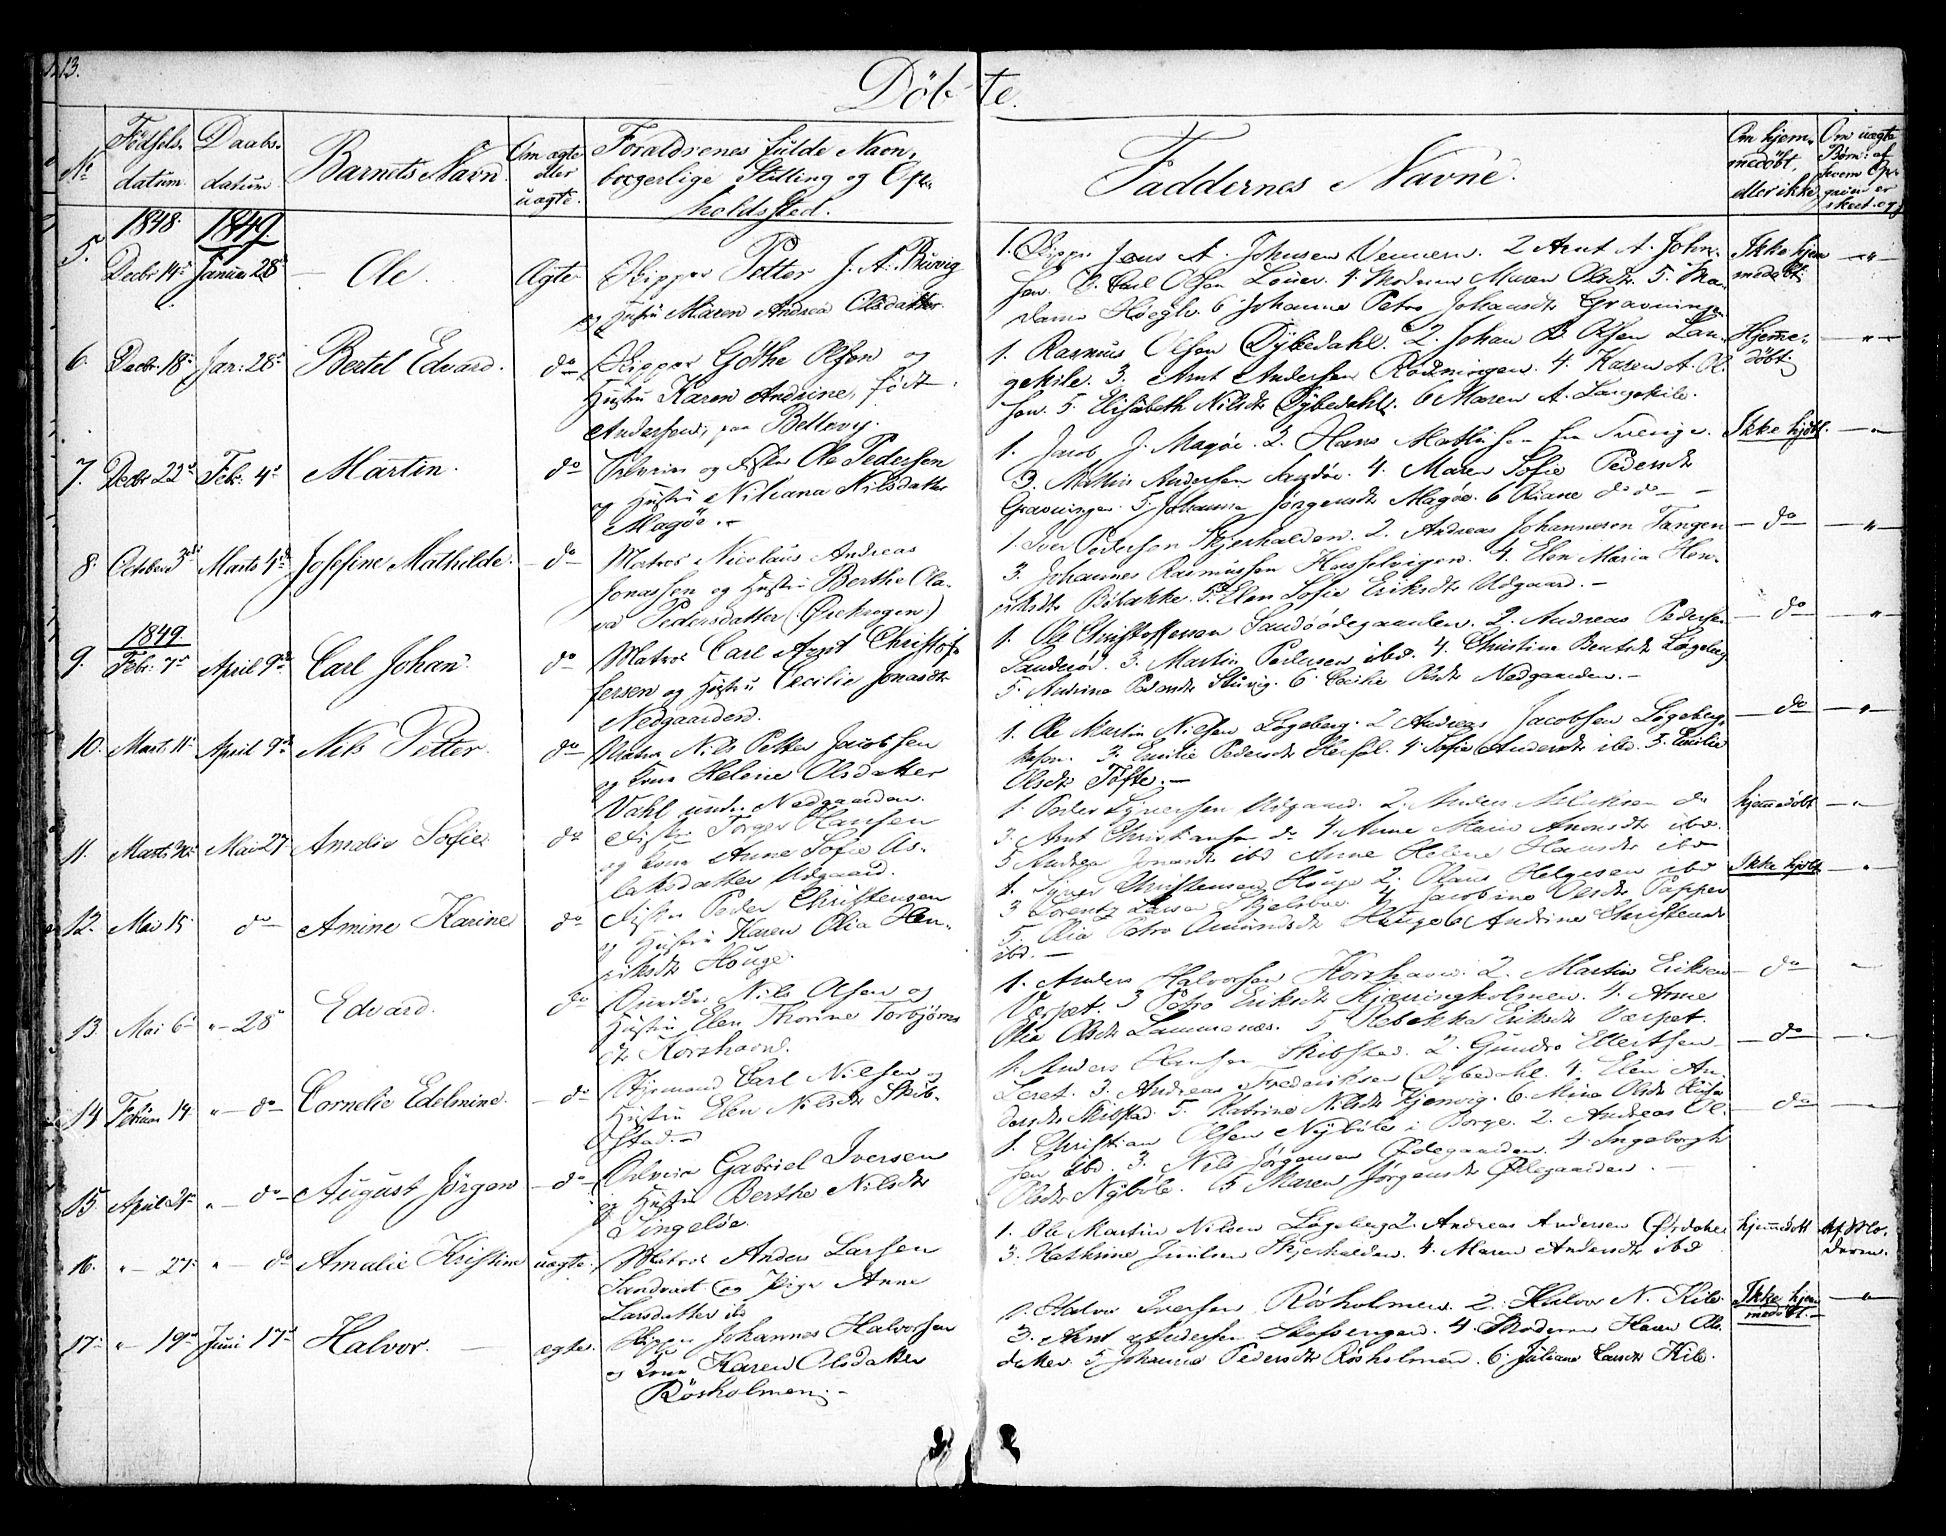 13.
Döbte.
No
Födsels-datum
Daabs-datum
Barnets Navn
Om ægte eller uægte.
Forældrenes fulde Navn, borgerlige Stilling og Opholdssted.
Faddernes Navne.
Om hjemmedöbt, eller ikke
Om uægte Börn: af hvem Opgaven er skeet
1848. 1849.
5. Decbr 14de Januar 28de Ole. Ægte
Skipper Petter J. A. Buvig
og Hustru Maren Andrea Olsdatter
1. Skipper Jens A. Johnsen 2 Arnt A. John-
sen. 3. Carl Olsen 4. Madame Maren Olsdtr. 5. Ma-
dame Höegh. 6 Johanne Petra Johansdtr Gravningen
Ikke hjemmedöbt
6. Decbr 18de Jan: 28de Bertel Edvard. do
Skipper Göthe Olsen og
Hustru Karen Andrine, född
Andersen, paa Bellevy.
1. Rasmus Olsen Dybedahl. 2. Johan B. Olsen Lan-
gekile. 3. Arnt Andersen Rödningen. 4. Karen A. Ol-
sen. 5. Elisabeth Nilsdtr Dybedahl. 6 Maren A. Langekile.
Hjemmedöbt
7. Decbr 22de Febr: 4de Martin. do
og Fisker Ole Pedersen
og Hustru Niliana Nilsdatter
Magöe.
1. Jacob J. Magöe. 2. Hans Mathisen fra Sverige.
3. Mathis Andersen Sandöe. 4. Maren Sofie Pedersdtr
Gravningen. 5. Johanne Jörgensdtr Magöe. 6 do do
Ikke hjdbt.
8. October 3die Marts 4de Josefine Mathilde. do
Matros Nicolaus Andreas
Jonassen og Hustru Berthe Ola-
va Pedersdatter
1. Iver Pedersen Skjerhalden. 2. Andreas Johannesen Tangen
3. Johannes Rasmussen Hasselvigen. 4. Elen Maria Hen-
riksdtr 5. Elen Sofie Eriksdtr Udgaard.
do
1849
9. Febr: 7de April 9de Carl Johan do
Matros Carl Arnt Christof-
fersen og Hustru Cecilie Jonasdtr
Nedgaarden.
1. Ole Christoffersen Sandöödegaarden. 2. Andreas Pedersen
3. Martin Pedersen ibd. 4. Christine Berntsdtr Lögeberg
5. Andrine Pedersdtr 6 Olsdtr Nedgaarden.
do
10. Marts 11te April 9de Nils Petter. do
Matros Nils Petter Jacobsen
og Kone Helene Olsdatter
Vahl under Nedgaarden.
1. Ole Martin Nielsen Lögeberg. 2 Andreas Jacobsen Lögeberg-
3. Emilie Pedersdtr Herföl. 4. Sofie Andersdtr ibd. 5.
Olsdtr Tofte.
do
11. Marts 30te Mai 27 Amalie Sofie do
Fisker Torger Hansen
og Kone Anne Sofie As-
laksdatter Udgaard.
1. Peder Syversen Udgaard. 2. Anders do
3. Arnt Christiansen do 4. Anne Marie ibd.
5 Andrea Jonasdtr ibd Anne Helene Hansdtr ibd
hjemmedöbt
12. Mai 15 do Amine Karine do
Fisker Peder Christensen
og Hustru Karen Olia Hen-
riksdtr Houge.
1. Syver Christensen Houge 2. Helgesen ibd
3 Lorentz Larsen Skjelsboe. 4 Jacobine Olsdtr Papper
5. Olia Petra Houge 6 Andrine Christensdtr
ibd.
Ikke hjdbt
13. Mai 6te 28de Edvard. do
Nils Olsen og
Hustru Elen Thorine Torbjörns-
dtr Korshavn.
1. Anders Halvorsen Korshavn. 2. Martin Eriksen
Værpet. 3 Petra Eriksdtr Kjærringholmen. 4. Anne
Olia Olsdtr Lammenæs. 5 Rebekka Eriksdtr Værpet.
do
14. Februar 14. do Cornelie Edelmine. do
Styrmand Carl Nilsen og
Hustru Elen Nilsdtr Skib-
stad.
1. Anders Hansen Skibstad. 2. Gundro Ellertsen
Leret. 3. Andreas Frederiksen Dybedahl. 4. Elen An-
dersdtr Skibstad 5. Katrine Nilsdtr 6. Mina Olsdtr
do
15. April 2de do August Jörgen do
Gabriel Iversen
og Hustru Berthe Nilsdtr
Singelöe.
1. Christian Olsen Nyböle i Borge. 2. Andreas Ol-
sen ibd. 3. Nils Jörgensen Ödegaarden 4. Ingeborgh
Olsdtr Nyböle. 5 Maren Jörgensdtr Ödegaarden.
do
16. 27. do Amalie Kristine uægte.
Matros Anders Larsen
og Pige Anne
Larsdatter ibd
1. Ole Martin Nilsen Lögeberg 2. Andreas Andersen
3. Kathrine Skjerhalden. 4. Maren Andersdtr ibd
hjemmedöbt
Af Moderen.
17. 19de Juni 17de Halvor. ægte.
Johannes Halvorsen
og Kone Karen Olsdatter
Rösholmen.
1. Halvor Iversen Rösholmen. 2. Halvor N. Kile
3. Arnt Andersen 4 Madame Maren Ols-
datter. 5 Johanne Pedersdtr Rösholmen. 6. Juliane Larsdtr Kile.
Ikke hjemmedöbt.